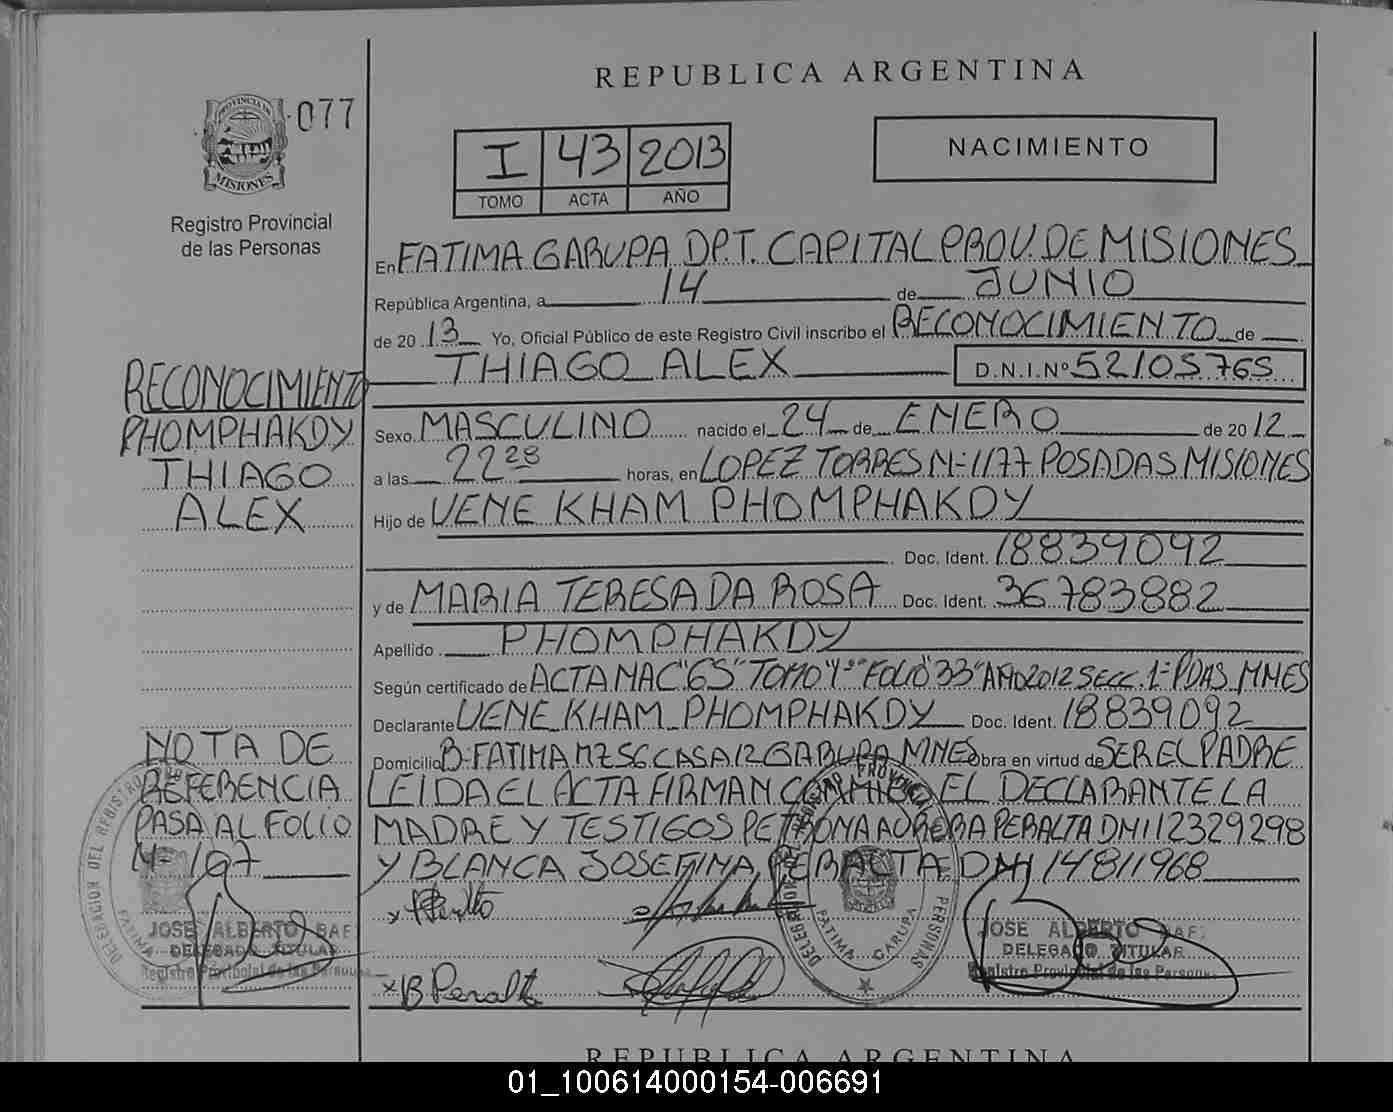 REPUBLICA ARGENTINA
PROVINCIA DE
MISIONES
077
Registro Provincial
de las Personas
I 43 2013
TOMO ACTA AÑO
NACIMIENTO
En FATIMA GARUPA DPT. CAPITAL PROV. DE MISIONES
República Argentina, a 14 de JUNIO
de 20 13 Yo, Oficial Público de este Registro Civil inscribo el RECONOCIMIENTO de
THIAGO ALEX D.N.I.Nº 52105765
Sexo MASCULINO nacido el 24 de ENERO de 20 12
a las 22 28 horas, en LOPEZ TORRES N-1177 POSADAS MISIONES
Hijo de VENE KHAM PHOMPHAKDY
Doc. Ident. 18839092
y de MARIA TERESA DA ROSA Doc. Ident. 36783882
Apellido PHOMPHAKDY
Según certificado de ACTA NAC "65" TOMO "1º" FOLIO "33" AÑO 2012 SECC. 1- PDAS. MNES
Declarante VENE KHAM PHOMPHAKDY Doc. Ident. 18839092
Domicilio B- FATIMA MZ 56 CASA 12 GARUPA MNES obra en virtud de SER EL PADRE
LEIDA EL ACTA FIRMAN CONMIGO EL DECLARANTE LA
MADRE Y TESTIGOS PETRONA AURORA PERALTA DNI 12329298
Y BLANCA JOSEFINA PERALTA DNI 14811968
RECONOCIMIENTO
PHOMPHAKDY
THIAGO
ALEX
NOTA DE
REFERENCIA
PASA AL FOLIO
N- 197
JOSE ALBERTO BAEZ
DELEGADO TITULAR
Registro Provincial de las Personas
x Peralta
x B Peralta
DELEGACION DEL REGISTRO PROVINCIAL DE LAS PERSONAS
FATIMA GARUPA
JOSE ALBERTO BAEZ
DELEGADO TITULAR
Registro Provincial de las Personas
REPUBLICA ARGENTINA
01_100614000154-006691